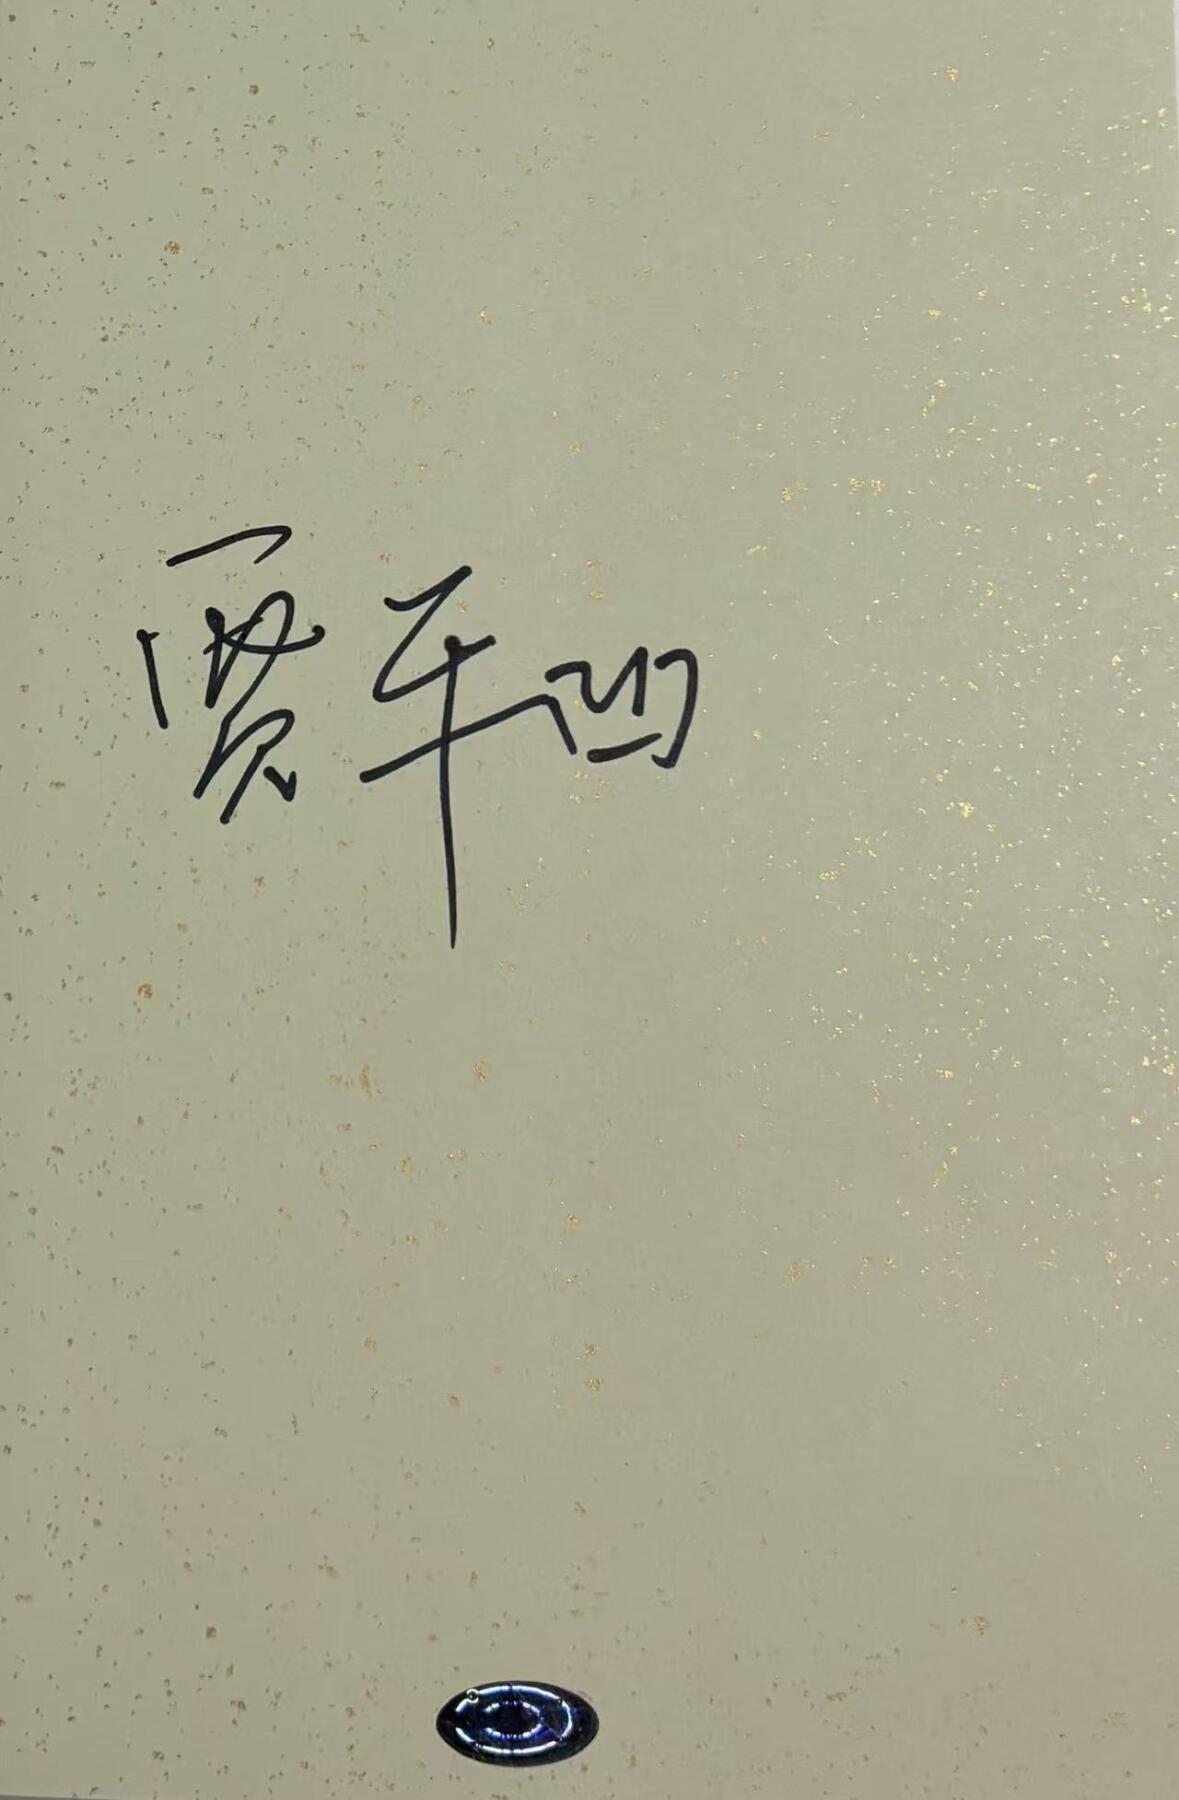 贾平凹